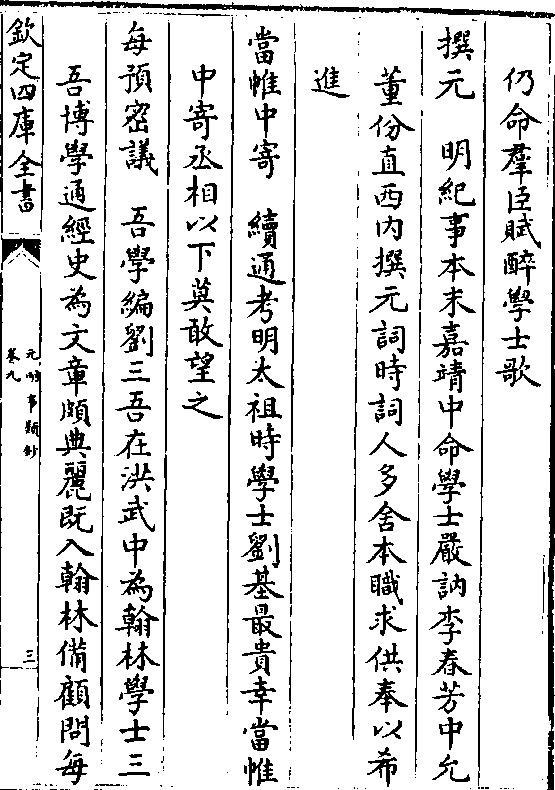 仍命羣臣賦醉學士歌
撰元　明紀事本末嘉靖中命學士嚴訥李春芳中允
董份直西内撰元詞時詞人多舍本職求供奉以希
進
當帷中寄　續通考明太祖時學士劉基最貴幸當帷
中寄丞相以下莫敢望之
每預密議　吾學編劉三吾在洪武中為翰林學士三
吾博學通經史為文章頗典麗既入翰林備顧問每
欽定四庫全書
元明事類鈔
卷九
三